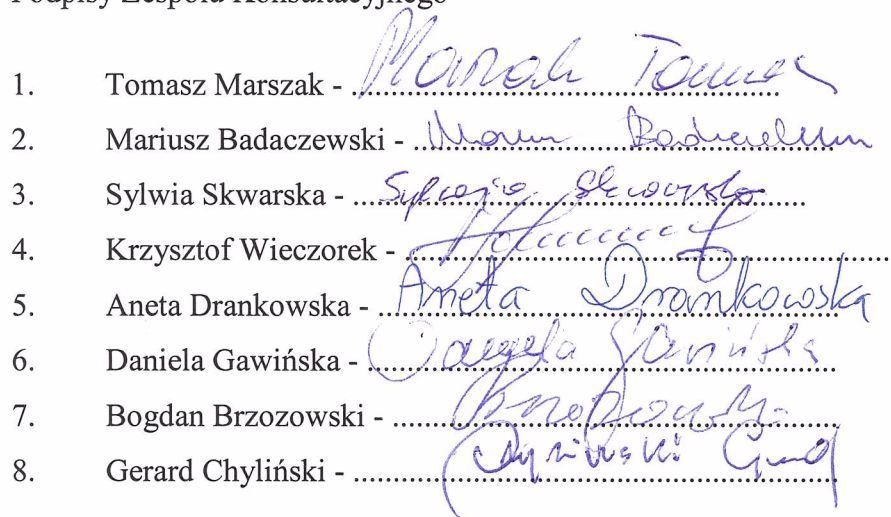 Podpisy Zespołu Konsultacyjnego
1. Tomasz Marszak - Marszak Tomasz
2. Mariusz Badaczewski -
3. Sylwia Skwarska - Sylwia Skwarska
4. Krzysztof Wieczorek -
5. Aneta Drankowska - Aneta Drankowska
6. Daniela Gawińska - Daniela Gawińska
7. Bogdan Brzozowski - Brzozowski
8. Gerard Chyliński - Chyliński Gerard